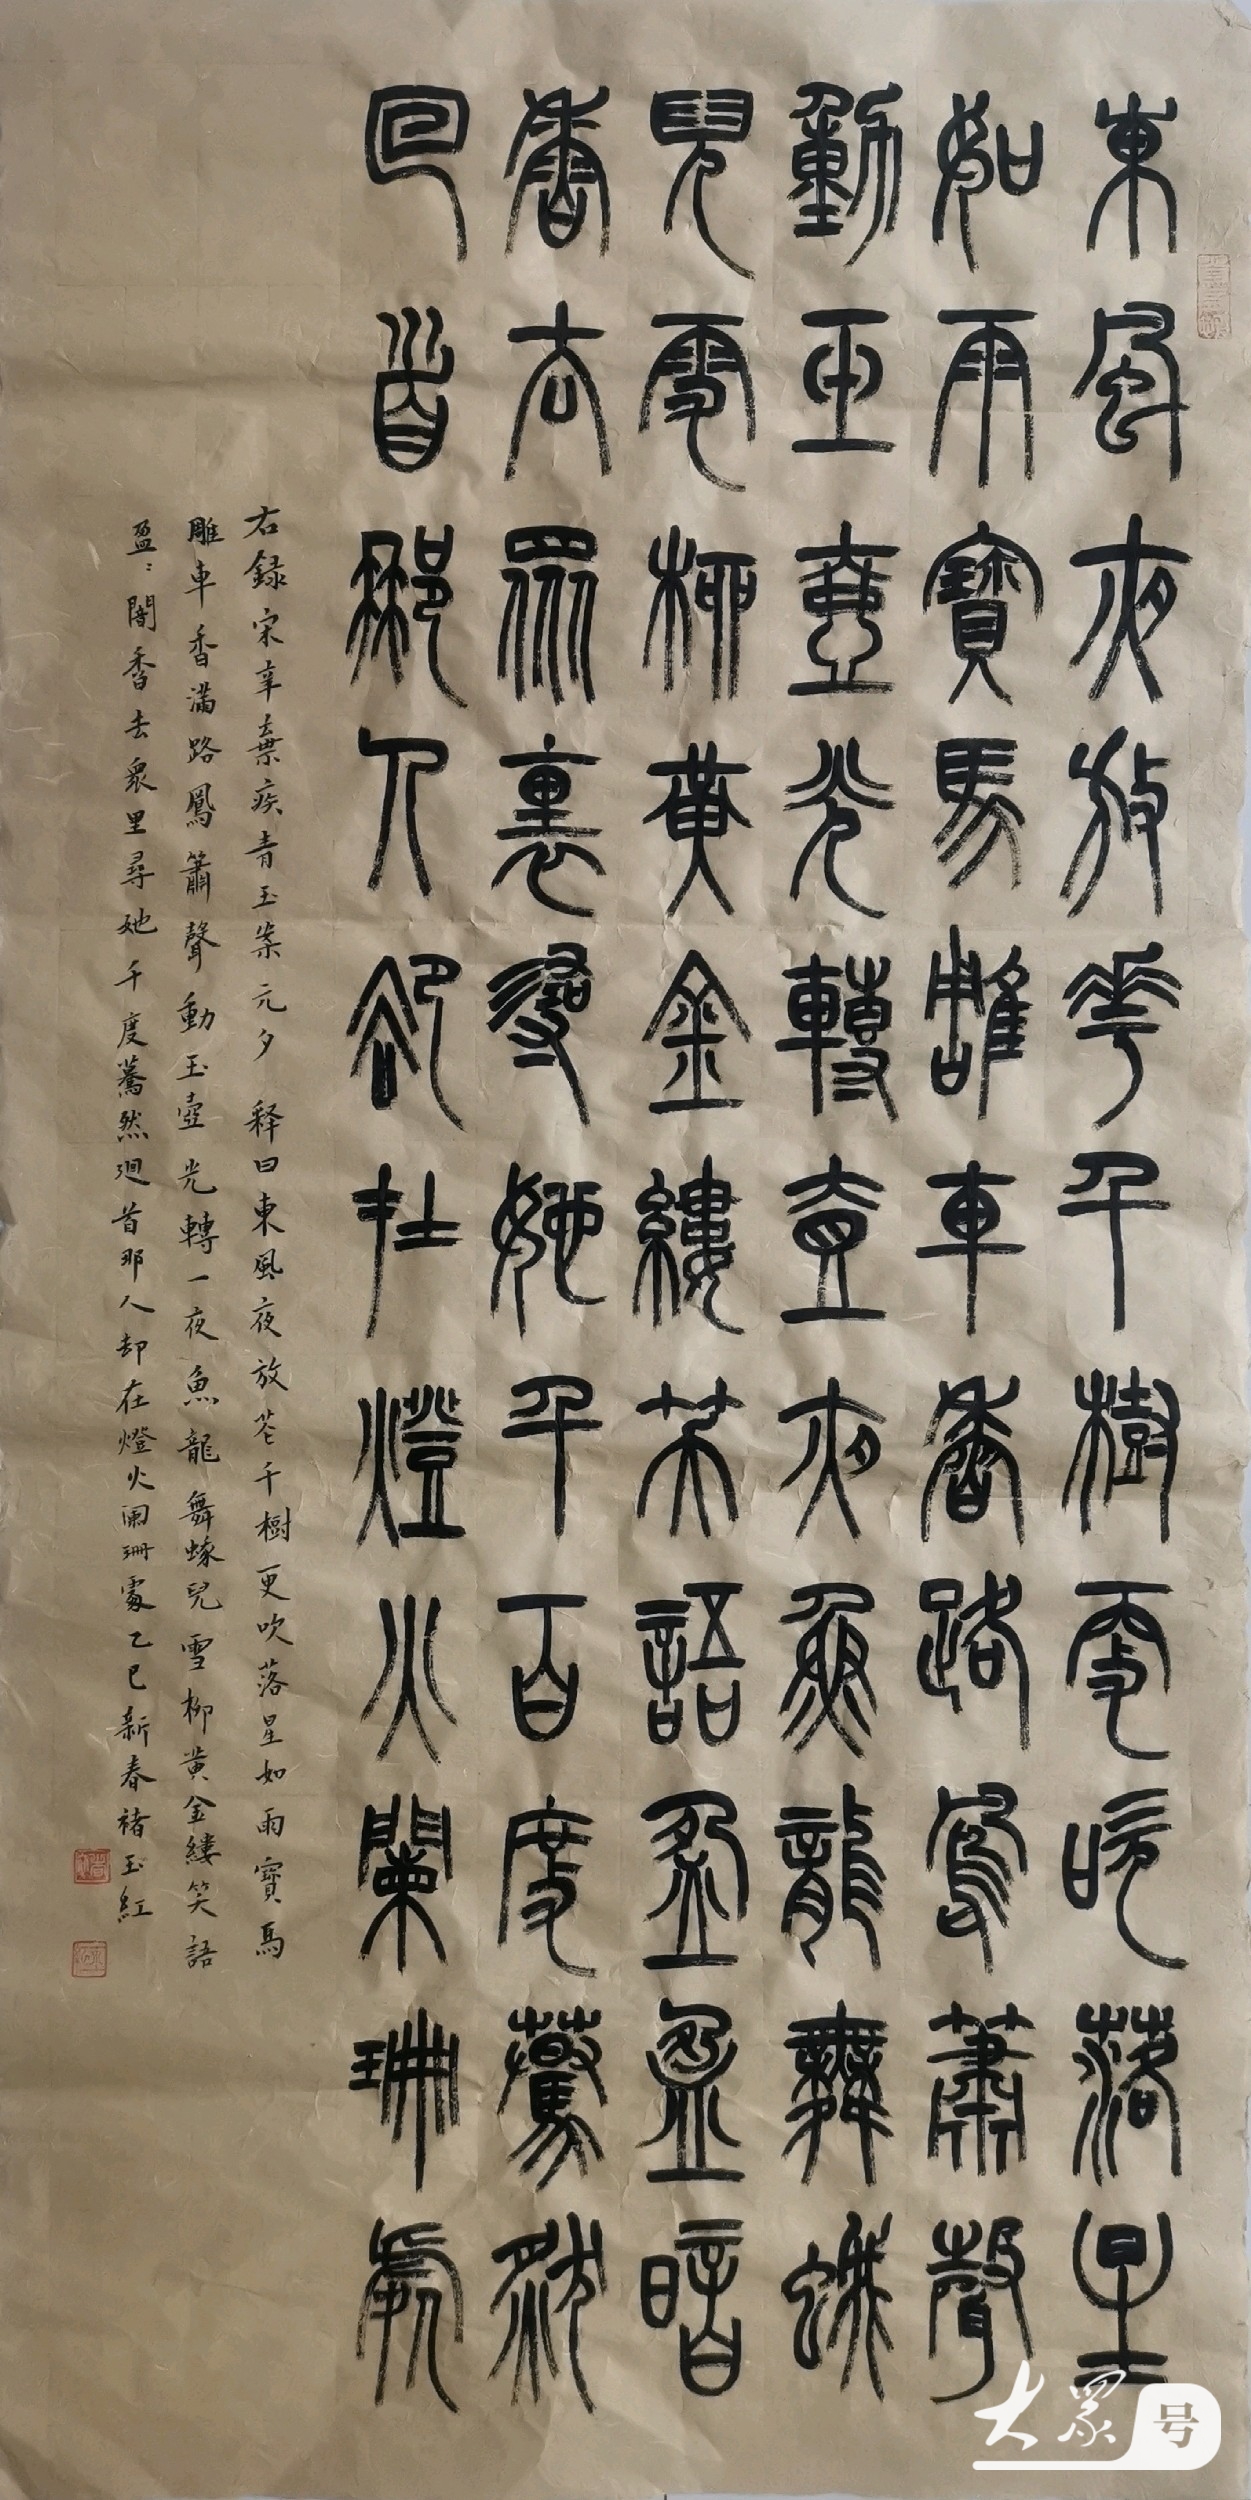 東風夜放花千樹更吹落星
如雨寶馬雕車香路鳳簫聲
動玉壺光轉壹夜魚龍舞蛾
兒雪柳黃金縷笑語盈盈暗
香去眾裏尋她千百度驀然
回首那人卻在燈火闌珊處
右録宋辛棄疾青玉案元夕 释曰東風夜放花千樹更吹落星如雨寶馬
雕車香滿路鳳簫聲動玉壺光轉一夜魚龍舞蛾兒雪柳黃金縷笑語
盈:闇香去衆里尋她千度驀然廻首那人却在燈火阑珊處乙巳新春褚玉紅
大眾号